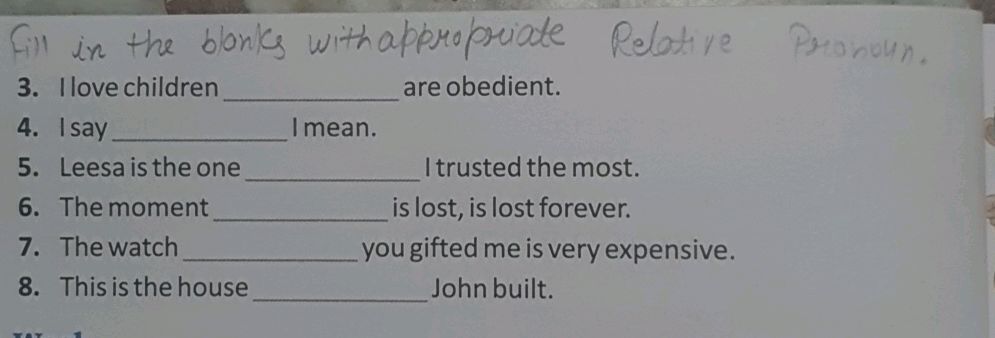 Fill in the blanks with appropriate Relative Pronoun.
3. I love children ____________ are obedient.
4. I say ____________ I mean.
5. Leesa is the one ____________ I trusted the most.
6. The moment ____________ is lost, is lost forever.
7. The watch ____________ you gifted me is very expensive.
8. This is the house ____________ John built.